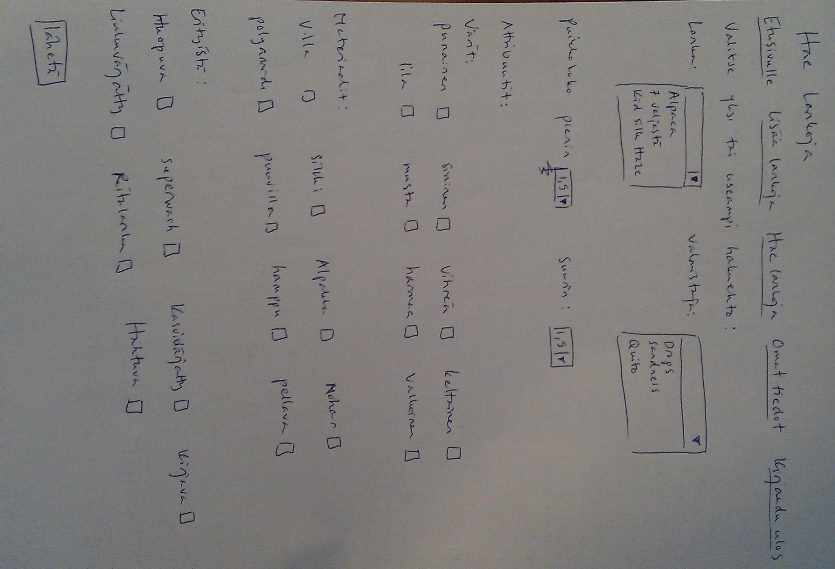 Hae lankoja
Etusivulle Lisää lankoja Hae lankoja Omat tiedot Kirjaudu ulos
Valitse yksi tai useampi hakuehto:
Lanka: Valmistaja:
Alpaca Drops
7 veljestä Sandnes
Kid Silk Haze Quito
puikkokoko pienin 1,5 suurin: 1,5
Attribuutit:
Värit:
punainen sininen vihreä keltainen
lila musta harmaa valkoinen
Materiaalit:
Villa Silkki Alpakka Mohair
polyamidi puuvilla hamppu pellava
Erityistä:
Huopuva superwash Kasvivärjätty Kirjava
Liukuvärjätty Reikälanka Hahtuva
lähetä